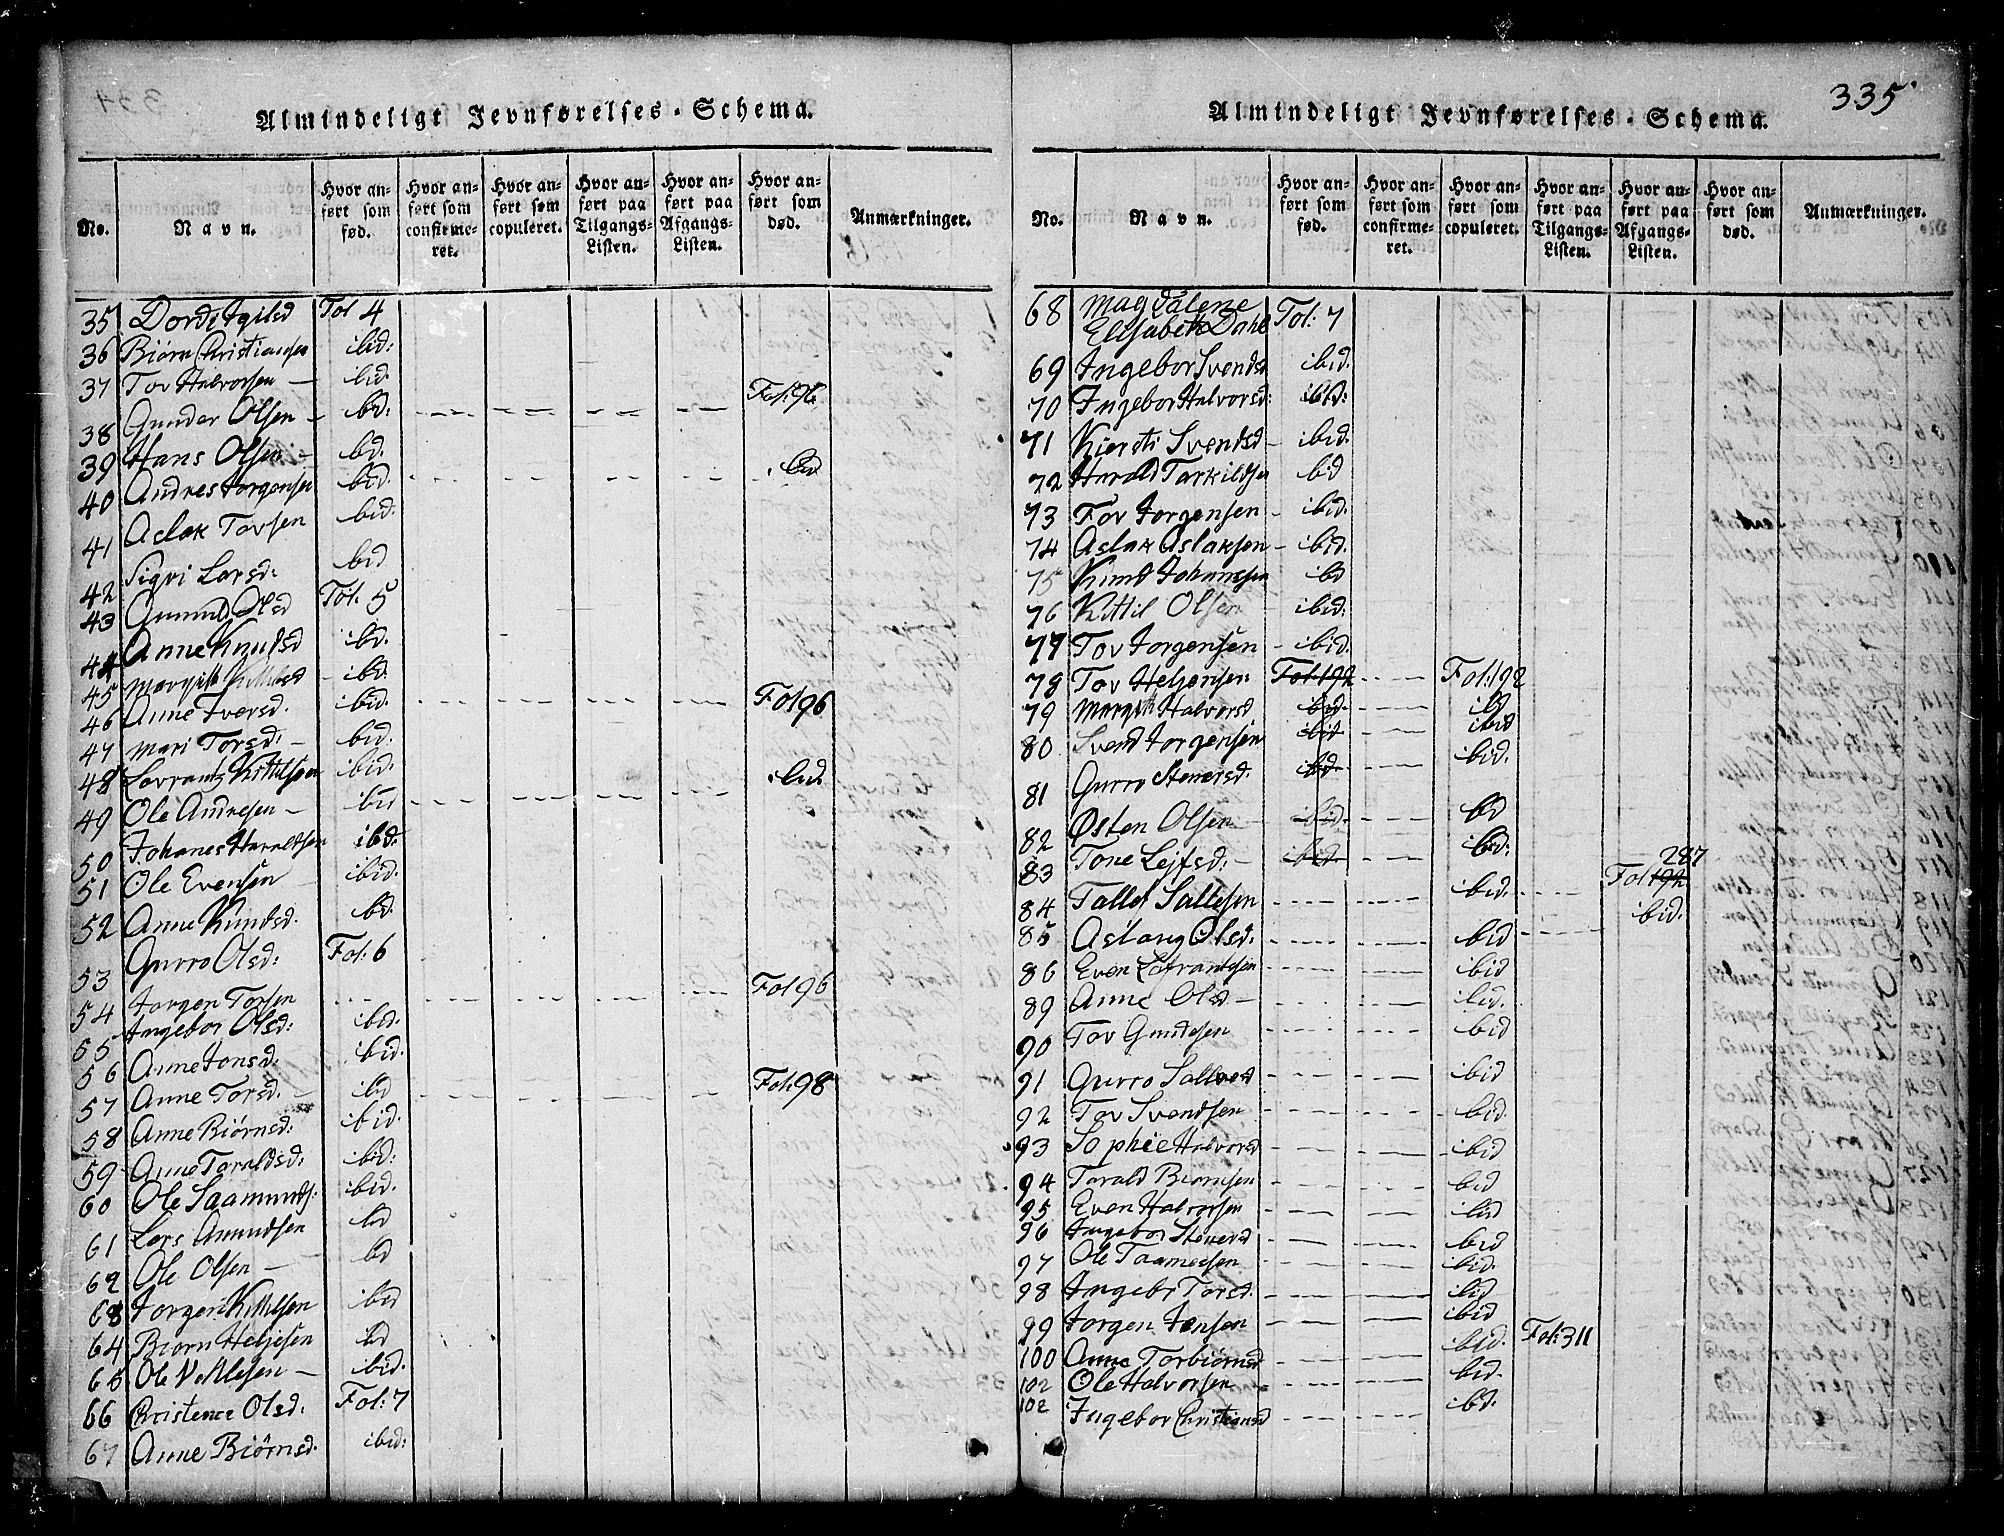 Almindeligt Jevnførelses-Schema.
No. Navn. Hvor anført som fød. Hvor anført som confirmeret. Hvor anført som copuleret. Hvor anført paa Tilgangs-Listen. Hvor anført paa Afgangs-Listen. Hvor anført som død. Anmærkninger.
35 Fol 4
36 Biørn Christiansen ibid:
37 Tov Halvorsen — ibid.
38 Gunder Olsen — ibid: Fol: 96
39 Hans Olsen — ibid.
40 Andres Jørgensen ibid. ibid
41 Aslak Tovsen ibid.
42 Sigri Larsd: ibid
43 Olsd Fol. 5
44 Anne Knutsd ibid.
45 Margith ibid.
46 Anne Iversd. ibid. Fol 96
47 Mari Torsd: — ibid.
48 Lavrantz Kittilsen ibid.
49 Ole Andresen — ibid ibid
50 Johanes Haraldsen ibid:
51 Ole Evensen ibid.
52 Anne Knudsd. ibid.
53 Gurro Olsd: Fol: 6
54 Jørgen Torsen Fol 96
55 Ingebor Olsd: ibid:
56 Anne Jonsd: ibid.
57 Anne Torsd. — ibid Fol: 98
58 Anne Biørnsd: ibid.
59 Anne Taraldsd: ibid:
60 Ole Saamunds: ibid.
61 Lars Amundsen ibid
62 Ole Olsen — ibid
63 Jørgen Kittilsen ibid
64 Biørn Heljesen ibid
65 Ole — ibid.
66 Christence Olsd. Fol: 7
67 Anne Biørnsd. ibid:
335
Almindeligt Jevnførelses-Schema.
No. Navn. Hvor anført som fød. Hvor anført som confirmeret. Hvor anført som copuleret. Hvor anført paa Tilgangs-Listen. Hvor anført paa Afgangs-Listen. Hvor anført som død. Anmærkninger.
68 Magdalene
Elisabeth Dahl Fol: 7
69 Ingebor Svendsd ibid.
70 Ingebor Halvorsd: ibid:
71 Kiersti Svendsd — ibid.
72 Harald Tarkildsen ibid
73 Tov Jørgensen — ibid.
74 Aslak Aslaksen — ibid.
75 Knud Johanssen ibid
76 Kittil Olsen ibid.
77 Tov Jørgensen — ibid.
78 Tov Heljesen Fol: 192 Fol: 192
79 Margith Halvorsd ibid. ibid
80 Svend Jørgensen ibid ibid
81 Gurro Stenersd. ibid. ibid.
82 Østen Olsen ibid. ibid
83 Tone Lejfsd: — ibid. ibid:
84 Sallesen ibid. Fol 192 287
85 Aslaug Olsd: ibid ibid.
86 Even Lafrantsen ibid
89 Anne Olsd — ibid.
90 Tov Gundesen ibid
91 Gurro ibid
92 Tov Svendsen ibid.
93 Sophie Halvorsd ibid
94 Tarald Biørnsen ibid
95 Even Halvorsen ibid
96 Ingebor Stenersd ibid
97 Ole ibid.
98 Ingebr Torsd. ibid
99 Jørgen Jensen ibid
100 Anne Torbiørnsd ibid. Fol: 311
102 Ole Halvorsen ibid.
102 Ingebor Christiansd ibid.